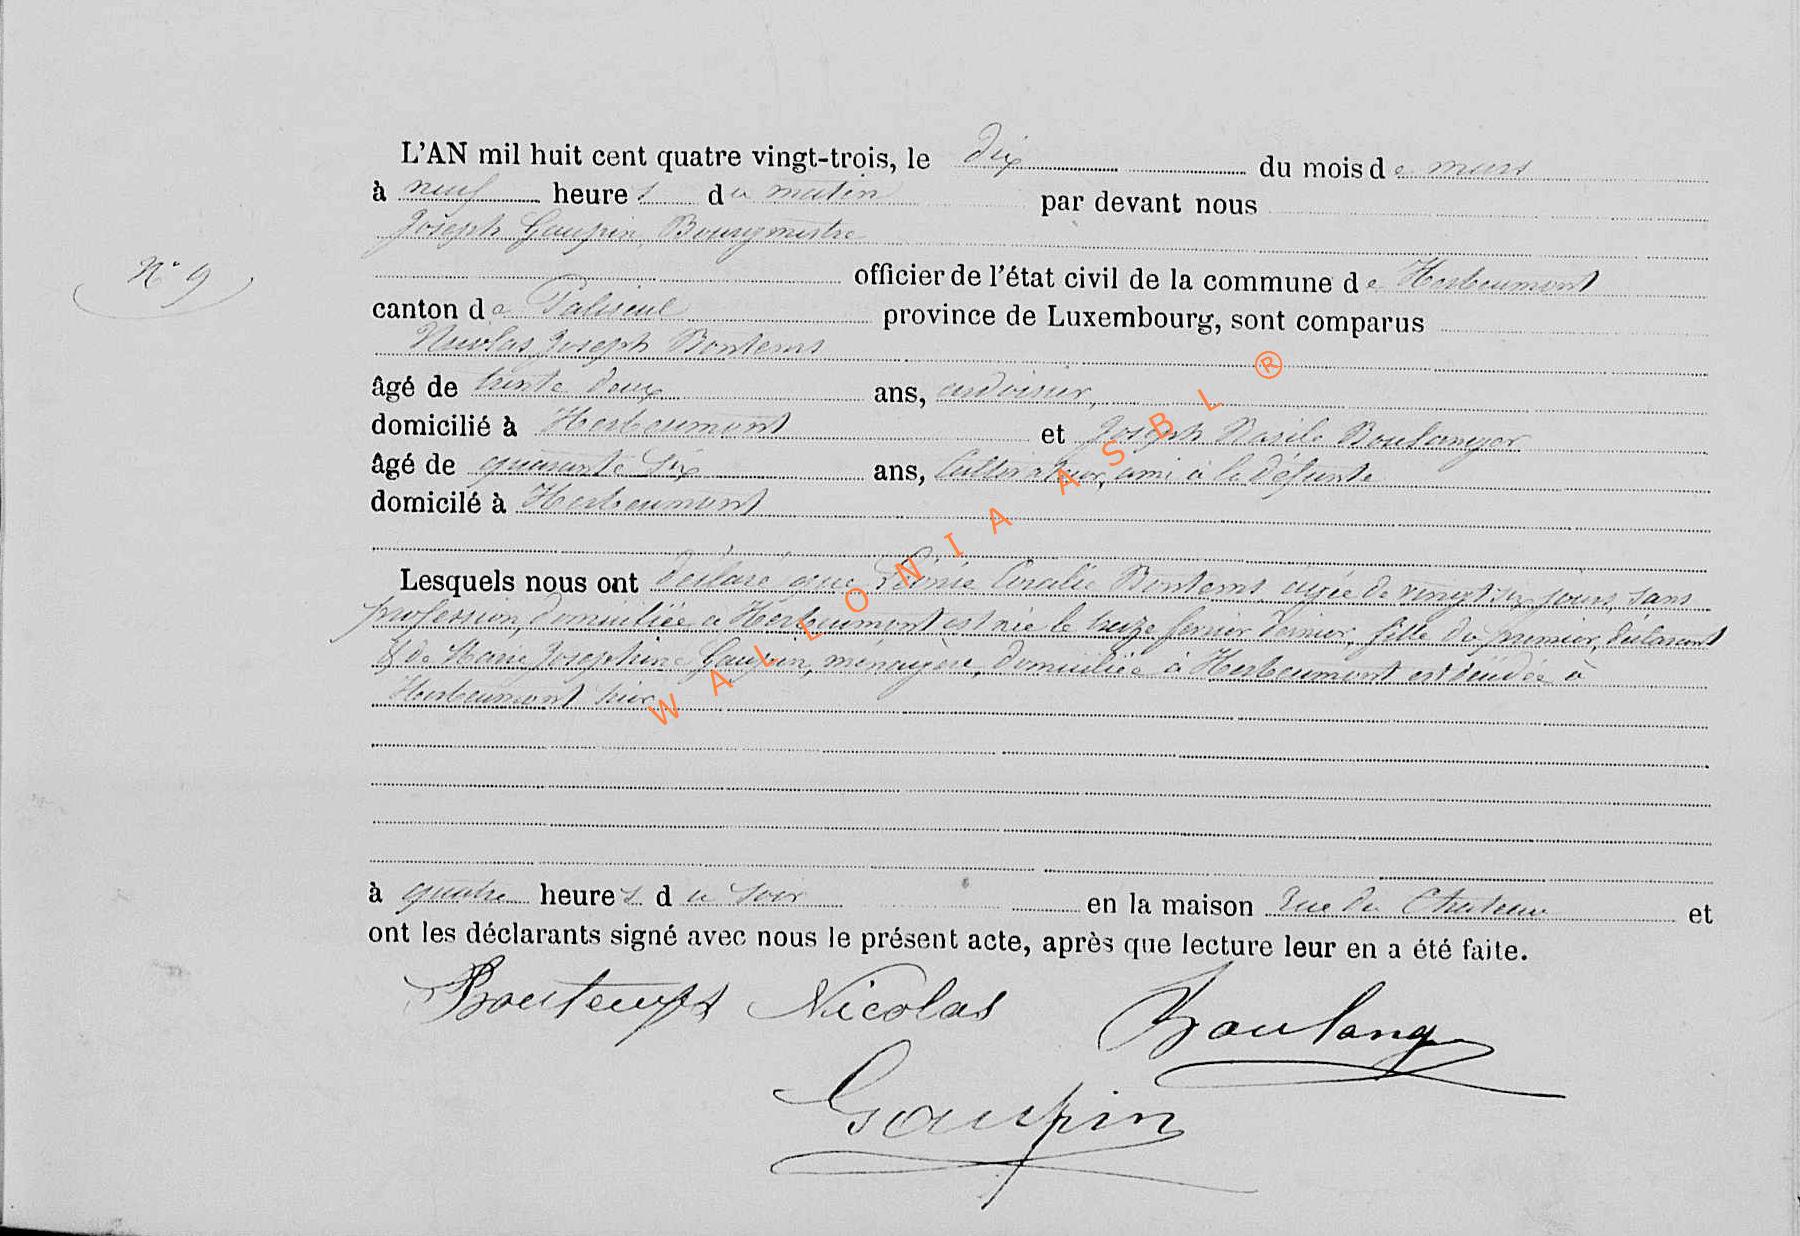 L'AN mil huit cent quatre vingt-trois, le dix du mois de mars
à neuf heures du matin par devant nous
Joseph Gaupin, Bourgmestre
N° 9
officier de l'état civil de la commune de Herbeumont
canton de Paliseul province de Luxembourg, sont comparus
Nicolas Joseph Bontems
âgé de trente deux ans, ardoisier,
domicilié à Herbeumont et Joseph Basile Boulanger
âgé de quarante six ans, Cultivateur, ami à la défunte
domicilé à Herbeumont
Lesquels nous ont déclaré que Coralie Bontems agée de vingt six jours, sans
profession, domiciliée à Herbeumont est née le treize fevrier dernier, fille du premier déclarant
& de Marie Josephine Gaupin, ménagère, domiciliée à Herbeumont est décédée à
Herbeumont hier
à quatre heures du soir en la maison rue du Chateau et
ont les déclarants signé avec nous le présent acte, après que lecture leur en a été faite.
Bontemps Nicolas Boulang
Gaupin
WALLONIA ASBL ®